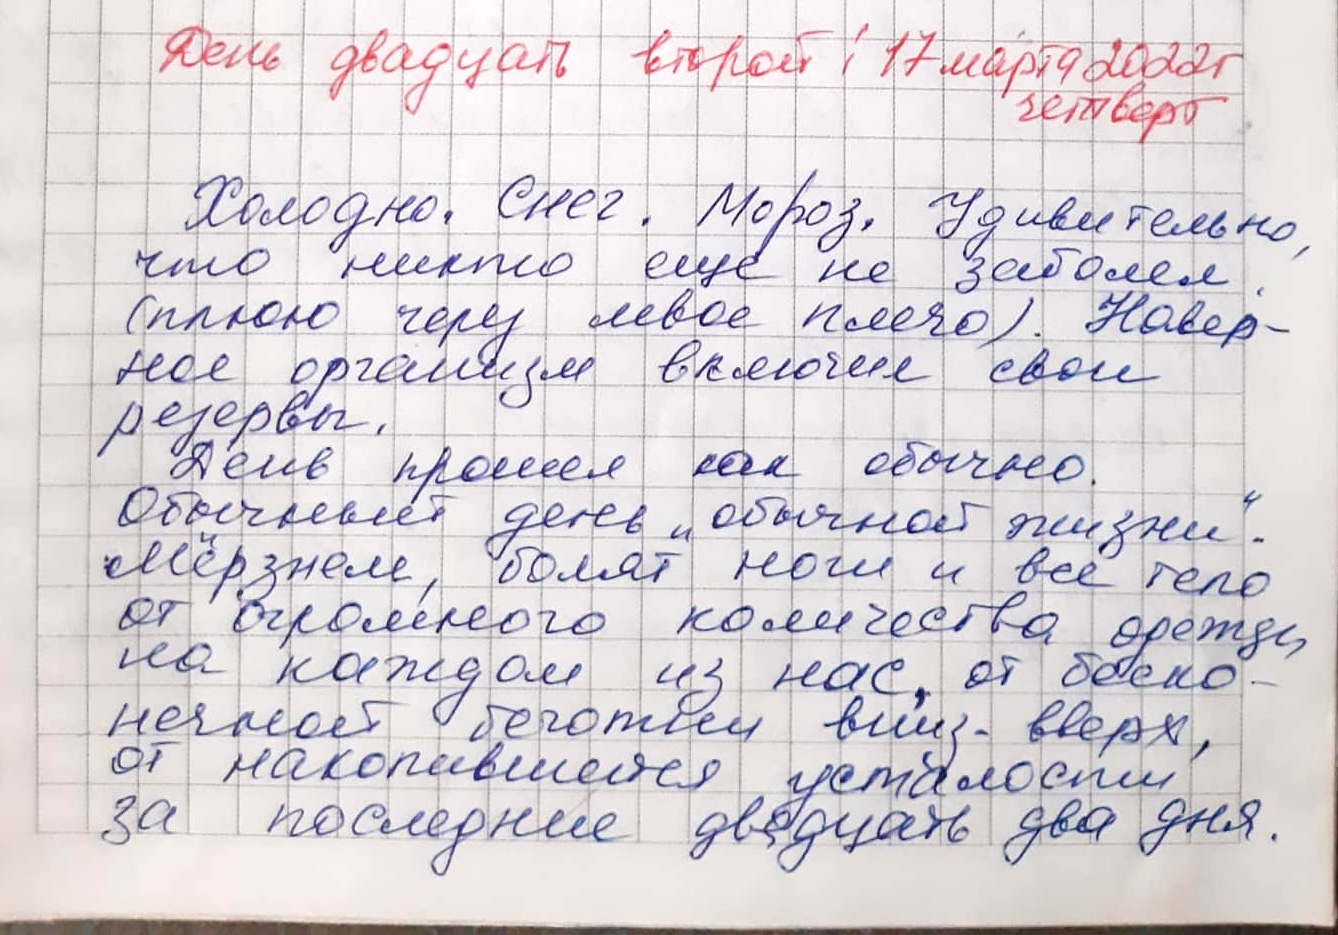 День двадцать второй! 17 марта 2022г
четверг
Холодно. Снег. Мороз. Удивительно,
что никто еще не заболел.
(плюю через левое плечо). Навер-
ное организм включил свои
резервы.
День прошел как обычно.
Обычный день „обычной жизни“.
Мёрзнем, болят ноги и все тело
от огромного количества одежды
на каждом из нас, от беско-
нечной беготни вниз-вверх,
от накопившейся усталости
за последние двадцать два дня.